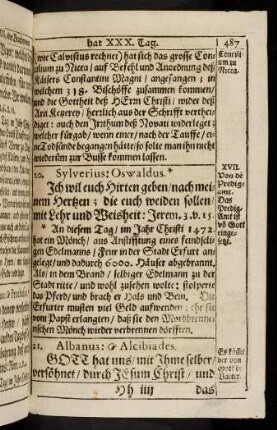 bar XXX. Tag.
487
(wie Calvisius rechnet) hat sich das grosse Con-
cilium zu Nicea/ auf Befehl und Anordnung deß
Käisers Constantini Magni/ angefangen; in
welchem 318. Bischöffe zusammen kommen/
und die Gottheit deß HErrn Christi/ wider deß
Arii Ketzerey/ herrlich aus der Schrifft verthei-
diget: auch den Irrthum deß Novati widerleget
welcher fürgab/ wenn einer/ nach der Tauffe/ ei-
ne Todsünde begangen hätte/ so solte man ihn nicht
wiederüm zur Busse kommen lassen.
Concili-
um zu
Nicea.
20. Sylverius: Oswaldus.*
Ich wil euch Hirten geben/ nach mei-
nem Hertzen; die euch weiden sollen/
mit Lehr und Weisheit: Jerem. 3. v. 15.
* An diesem Tag/ im Jahr Christi 1472
hat ein Mönch/ aus Anstifftung eines feindseli-
gen Edelmanns/ Feur in der Stadt Erfurt an-
gelegt/ und dadurch 6000. Häuser abgebrannt.
Als/ in dem Brand/ selbiger Edelmann zu der
Stadt ritte/ und wohl zusehen wolte: stolperte
das Pferd/ und brach er Hals und Bein. Die
Erfurter musten viel Geld aufwenden; ehe sie
vom Papst erlangten/ daß sie den Mordbrenne-
rischen Mönch wieder verbrennen dörfften.
XVII.
Von dē
Predig-
amt.
Das
Predig-
Amt ist
vō Gott
einge-
setzt.
21. Albanus: Alcibiades.
GOTT hat uns/ mit Ihme selber/
versöhnet/ durch JEsum Christ/ und
von
Gott dē
Vatter.
Hh iiij
das